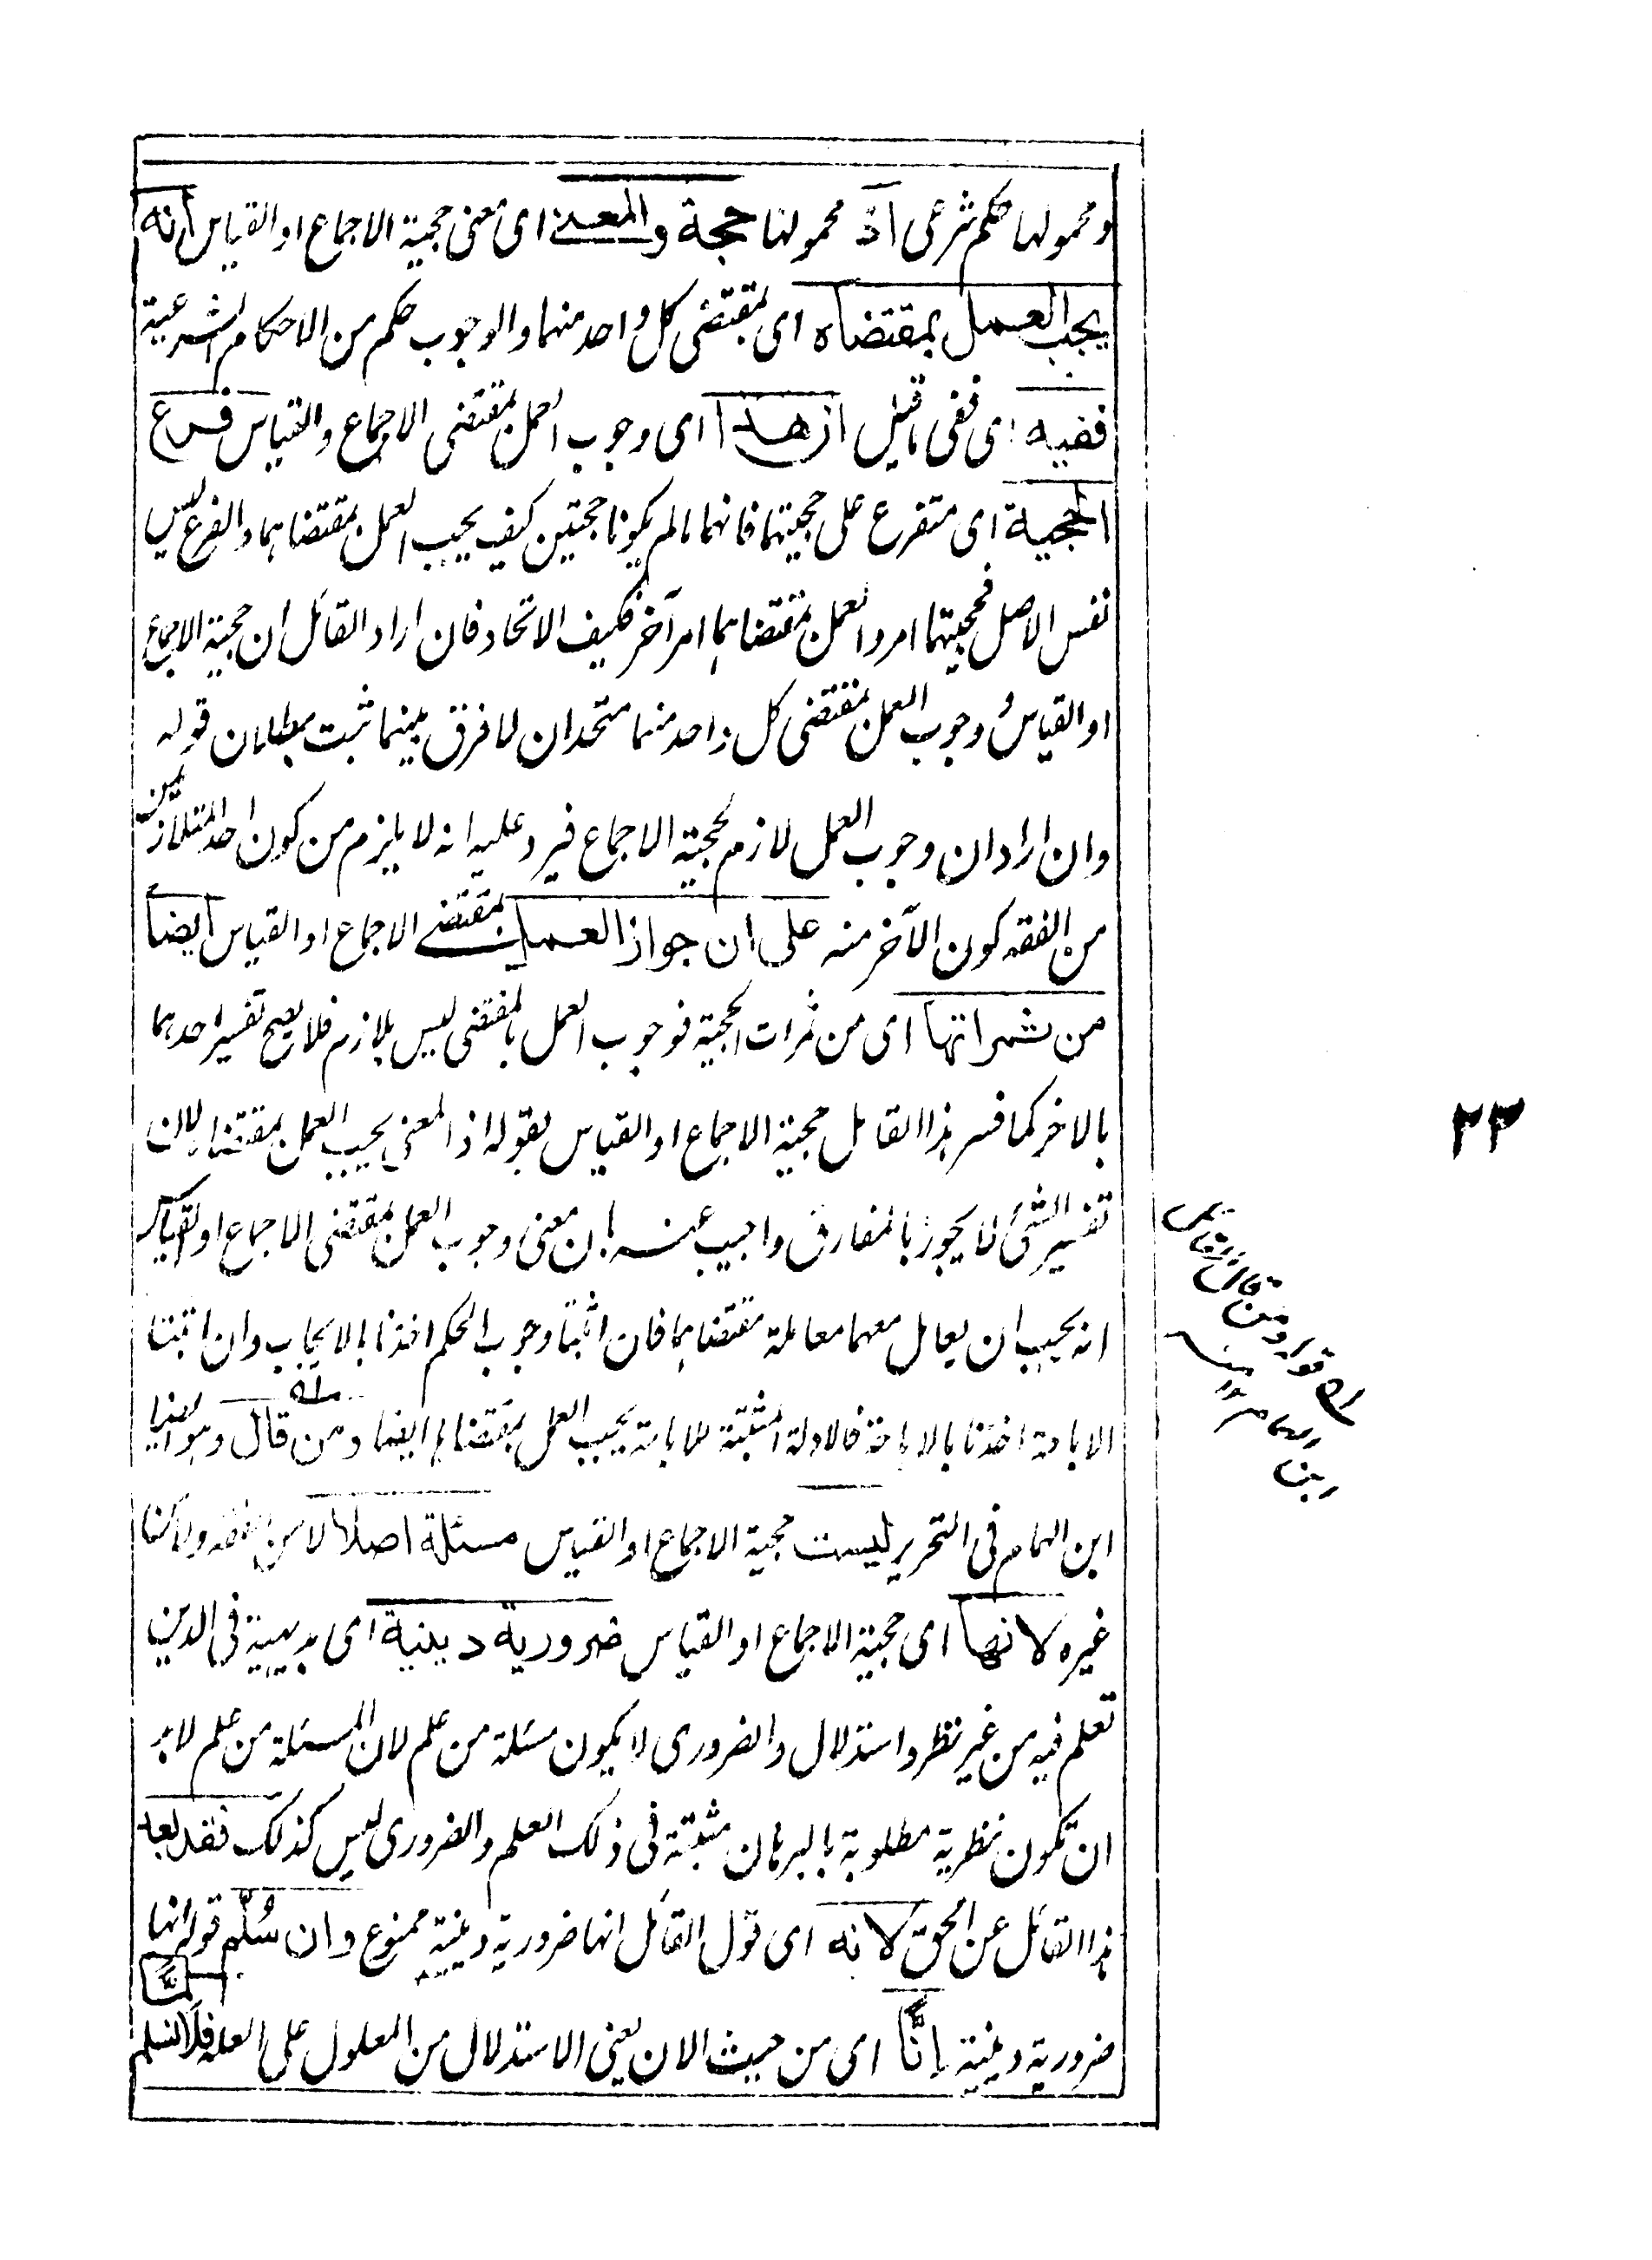 ومحمولها حكم شرعى اذ محمولها حجة والمعنى اى معنى حجية الاجماع او القياس انه
يجب العمل بمقتضاه اى بمقتضى كل واحد منهما والوجوب حكم من الاحكام الشرعية
ففيه اى ففى ما قيل ان هذا اى وجوب العمل بمقتضى الاجماع والقياس فرع
الحجية اى متفرع على حجيتهما فانهما مالم يكونا حجتين كيف يجب العمل بمقتضاهما والفرع ليس
نفس الاصل فحجيتهما امر والعمل بمقتضاهما امر آخر فكيف الاتحاد فان اراد القائل ان حجية الاجماع
او القياس ووجوب العمل بمقتضى كل واحد منهما متحدان لا فرق بينهما ثبت بطلان قوله
وان اراد ان وجوب العمل لازم لحجية الاجماع فيرد عليه انه لا يلزم من كون احد المتلازمين
من الفقه كون الآخر منه على ان جواز العمل بمقتضى الاجماع او القياس ايضا
من ثمراتها اى من ثمرات الحجية فوجوب العمل بالمقتضى ليس بلازم فلا يصح تفسير احدهما
بالاخر كما فسر هذا القائل حجية الاجماع او القياس بقوله اذ المعنى يجب العمل بمقتضاه لان
تفسير الشئ لا يجوز بالمفارق واجيب عنه بان معنى وجوب العمل بمقتضى الاجماع او القياس
انه يجب ان يعامل معهما معاملة مقتضاهما فان اثبتا وجوب الحكم اخذنا بالايجاب وان اثبتا
الاباحة اخذنا بالاباحة فالادلة المثبتة للاباحة يجب العمل بمقتضاها ايضا ومن قال وهو ايضا
ابن الهمام فى التحرير ليست حجية الاجماع او القياس مسئلة اصلا لا من الفقه ولا من
غيره لانها اى حجية الاجماع او القياس ضرورية دينية اى بديهية فى الدين
تعلم فيه من غير نظر واستدلال والضرورى لا يكون مسئلة من علم لان المسئلة من علم لا بد
ان تكون نظرية مطلوبة بالبرهان مثبتة فى ذلك العلم والضرورى ليس كذلك فقد بعد
هذا القائل عن الحق لانه اى قول القائل انها ضرورية دينية ممنوع وان سُلّم قوله انها
ضرورية دينية إنًّا اى من حيث الان يعنى الاستدلال من المعلول على العلة فلا نسلم
لِمًّا
٢٣
قوله ومن قال
ابن الهمام